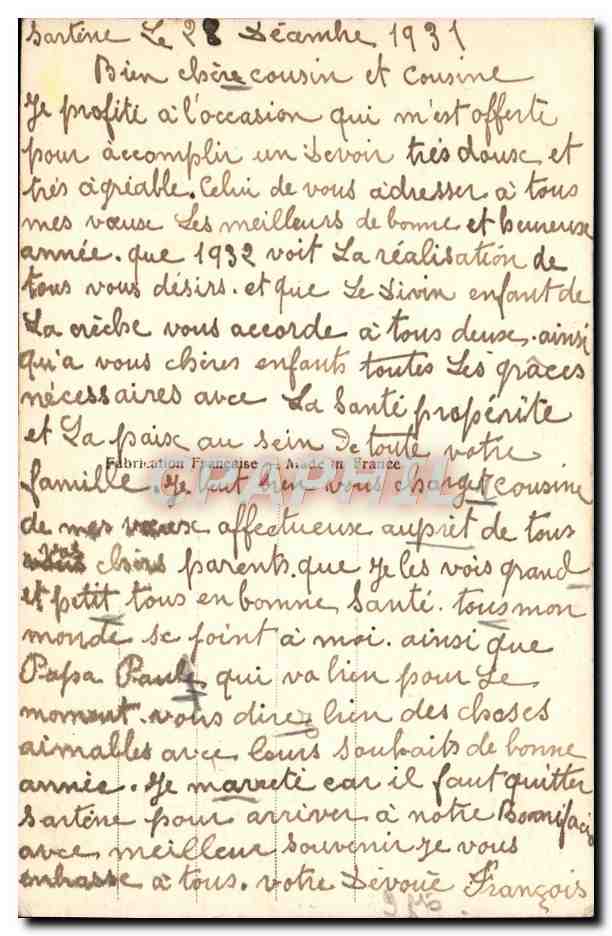 Sartène Le 28 Décembre 1931
Bien chère cousin et Cousine
Je profite à l'occasion qui m'est offerte
pour àccomplir un Devoir très douse et
très àgréable. Celui de vous àdresser à tous
mes vœuse Les meilleurs de bonne et heureuse
année. que 1932 voit La réalisation de
tous vous désirs. et que Le Divin enfant de
La crèche vous accorde à tous deuse. ainsi
qu'a vous chères enfants toutes Les grâces
nécessaires avce La Santé propérite
et La paise au sein de toute votre
Fabrication Française - Made in France
famille. Je tout bien vous charger cousine
de mes vœuse affectueuse aupret de tous
vos chèrs parents. que Je les vois grand
et petit tous en bonne Santé. tous mon
monde se joint à moi. ainsi que
Papa Paul qui va bien pour Le
moment. vous dire bien des choses
aimables avce leurs Souhaits de bonne
année. Je marrete car il faut quitter
Sartène pour arriver à notre Bonifacio
avce meilleur souvenir Je vous
enbasse à tous. votre Dévoué François
CPAPHIL